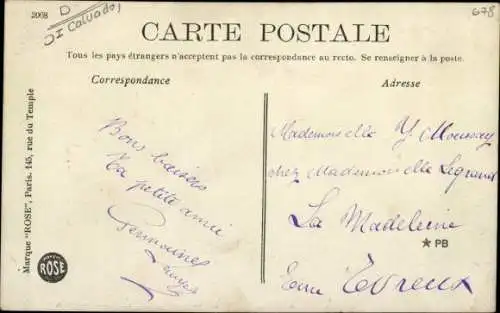 2008
D
Calvados
678
CARTE POSTALE
Tous les pays étrangers n'acceptent pas la correspondance au recto. Se renseigner à la poste.
Correspondance
Adresse
Marque "ROSE", Paris. 145, rue du Temple
ROSE
Bons baisers
Ta petite amie
Mademoiselle Y
chez Mademoiselle Legrand
La Madeleine
★ PB
Evreux